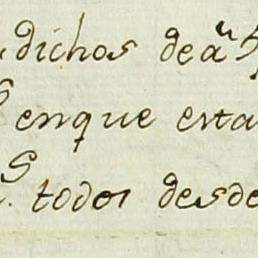 dichos de aᵘ
enque esta
S. todos desde